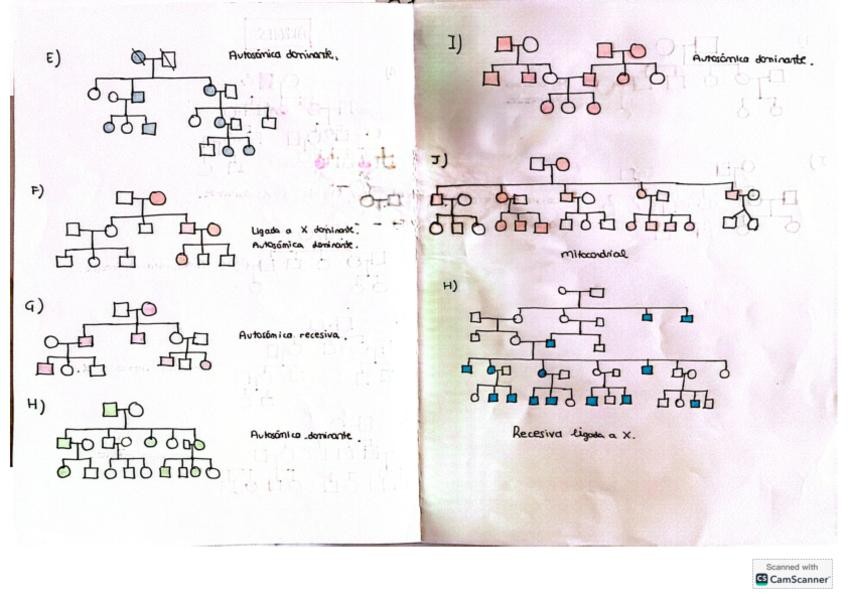 E)
Autosómica dominante.
F)
Ligada a X dominante.
Autosómica dominante.
G)
Autosómica recesiva.
H)
Autosómica dominante.
I)
Autosómica dominante.
J)
mitocondrial
H)
Recesiva ligada a X.
Scanned with
CS CamScanner